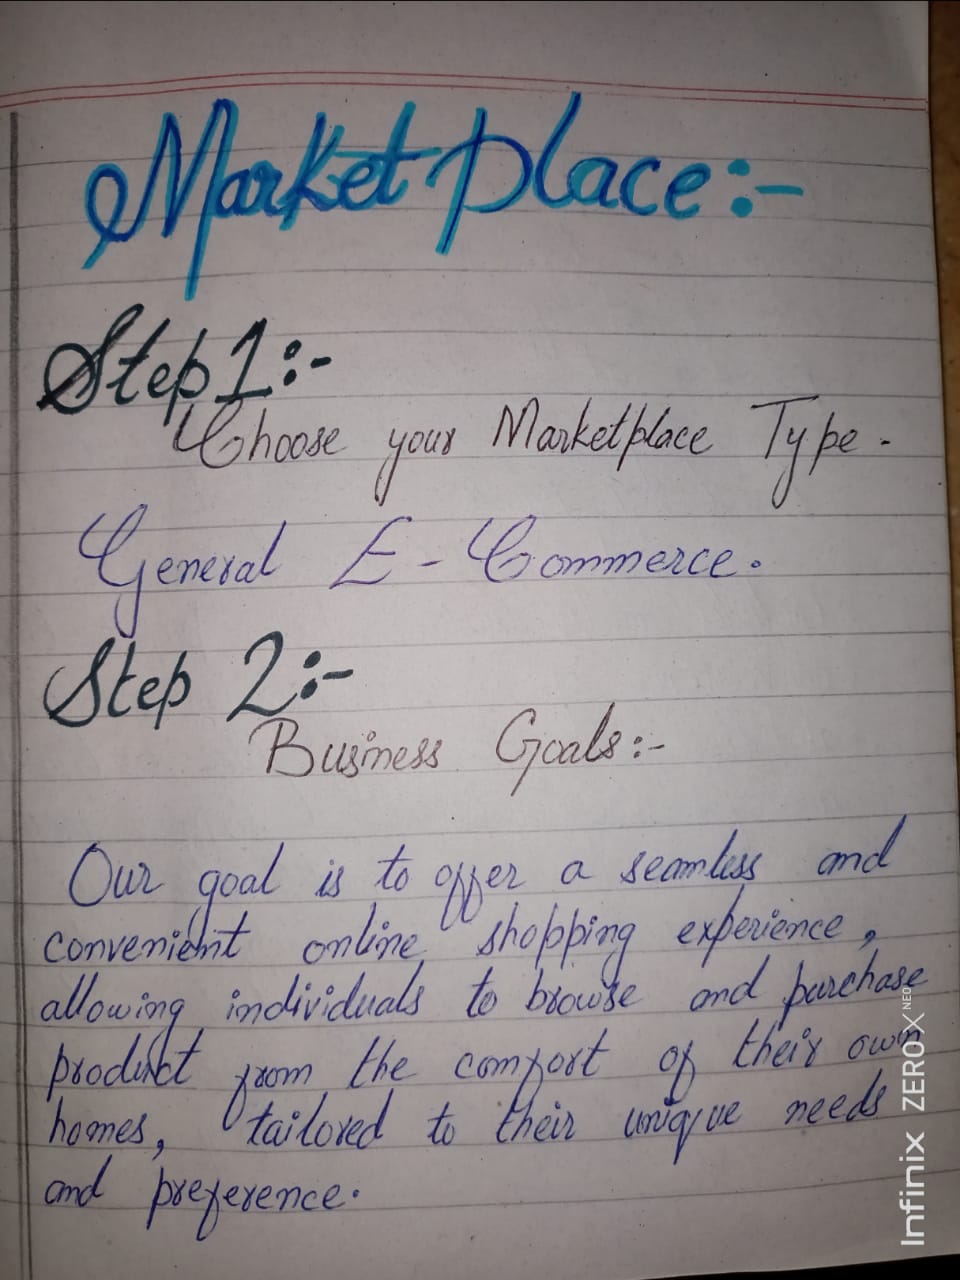 Market Place:-
Step 1:-
Choose your Marketplace Type.
General E-Commerce.
Step 2:-
Business Goals:-
Our goal is to offer a seamless and
convenient online shopping experience,
allowing individuals to browse and purchase
product from the comfort of their own
homes, tailored to their unique needs
and preference.
Infinix ZERO X NEO